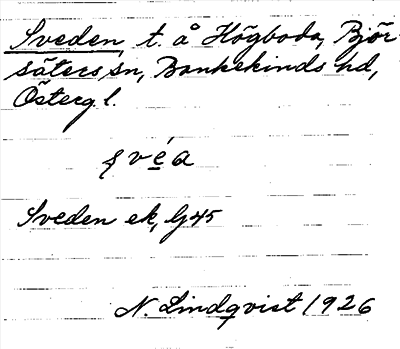 Sveden, t. å Högboda, Björ-
säters sn, Bankekinds hd,
Östergl.
svéa
Sveden ek, Gj 45
N. Lindqvist 1926